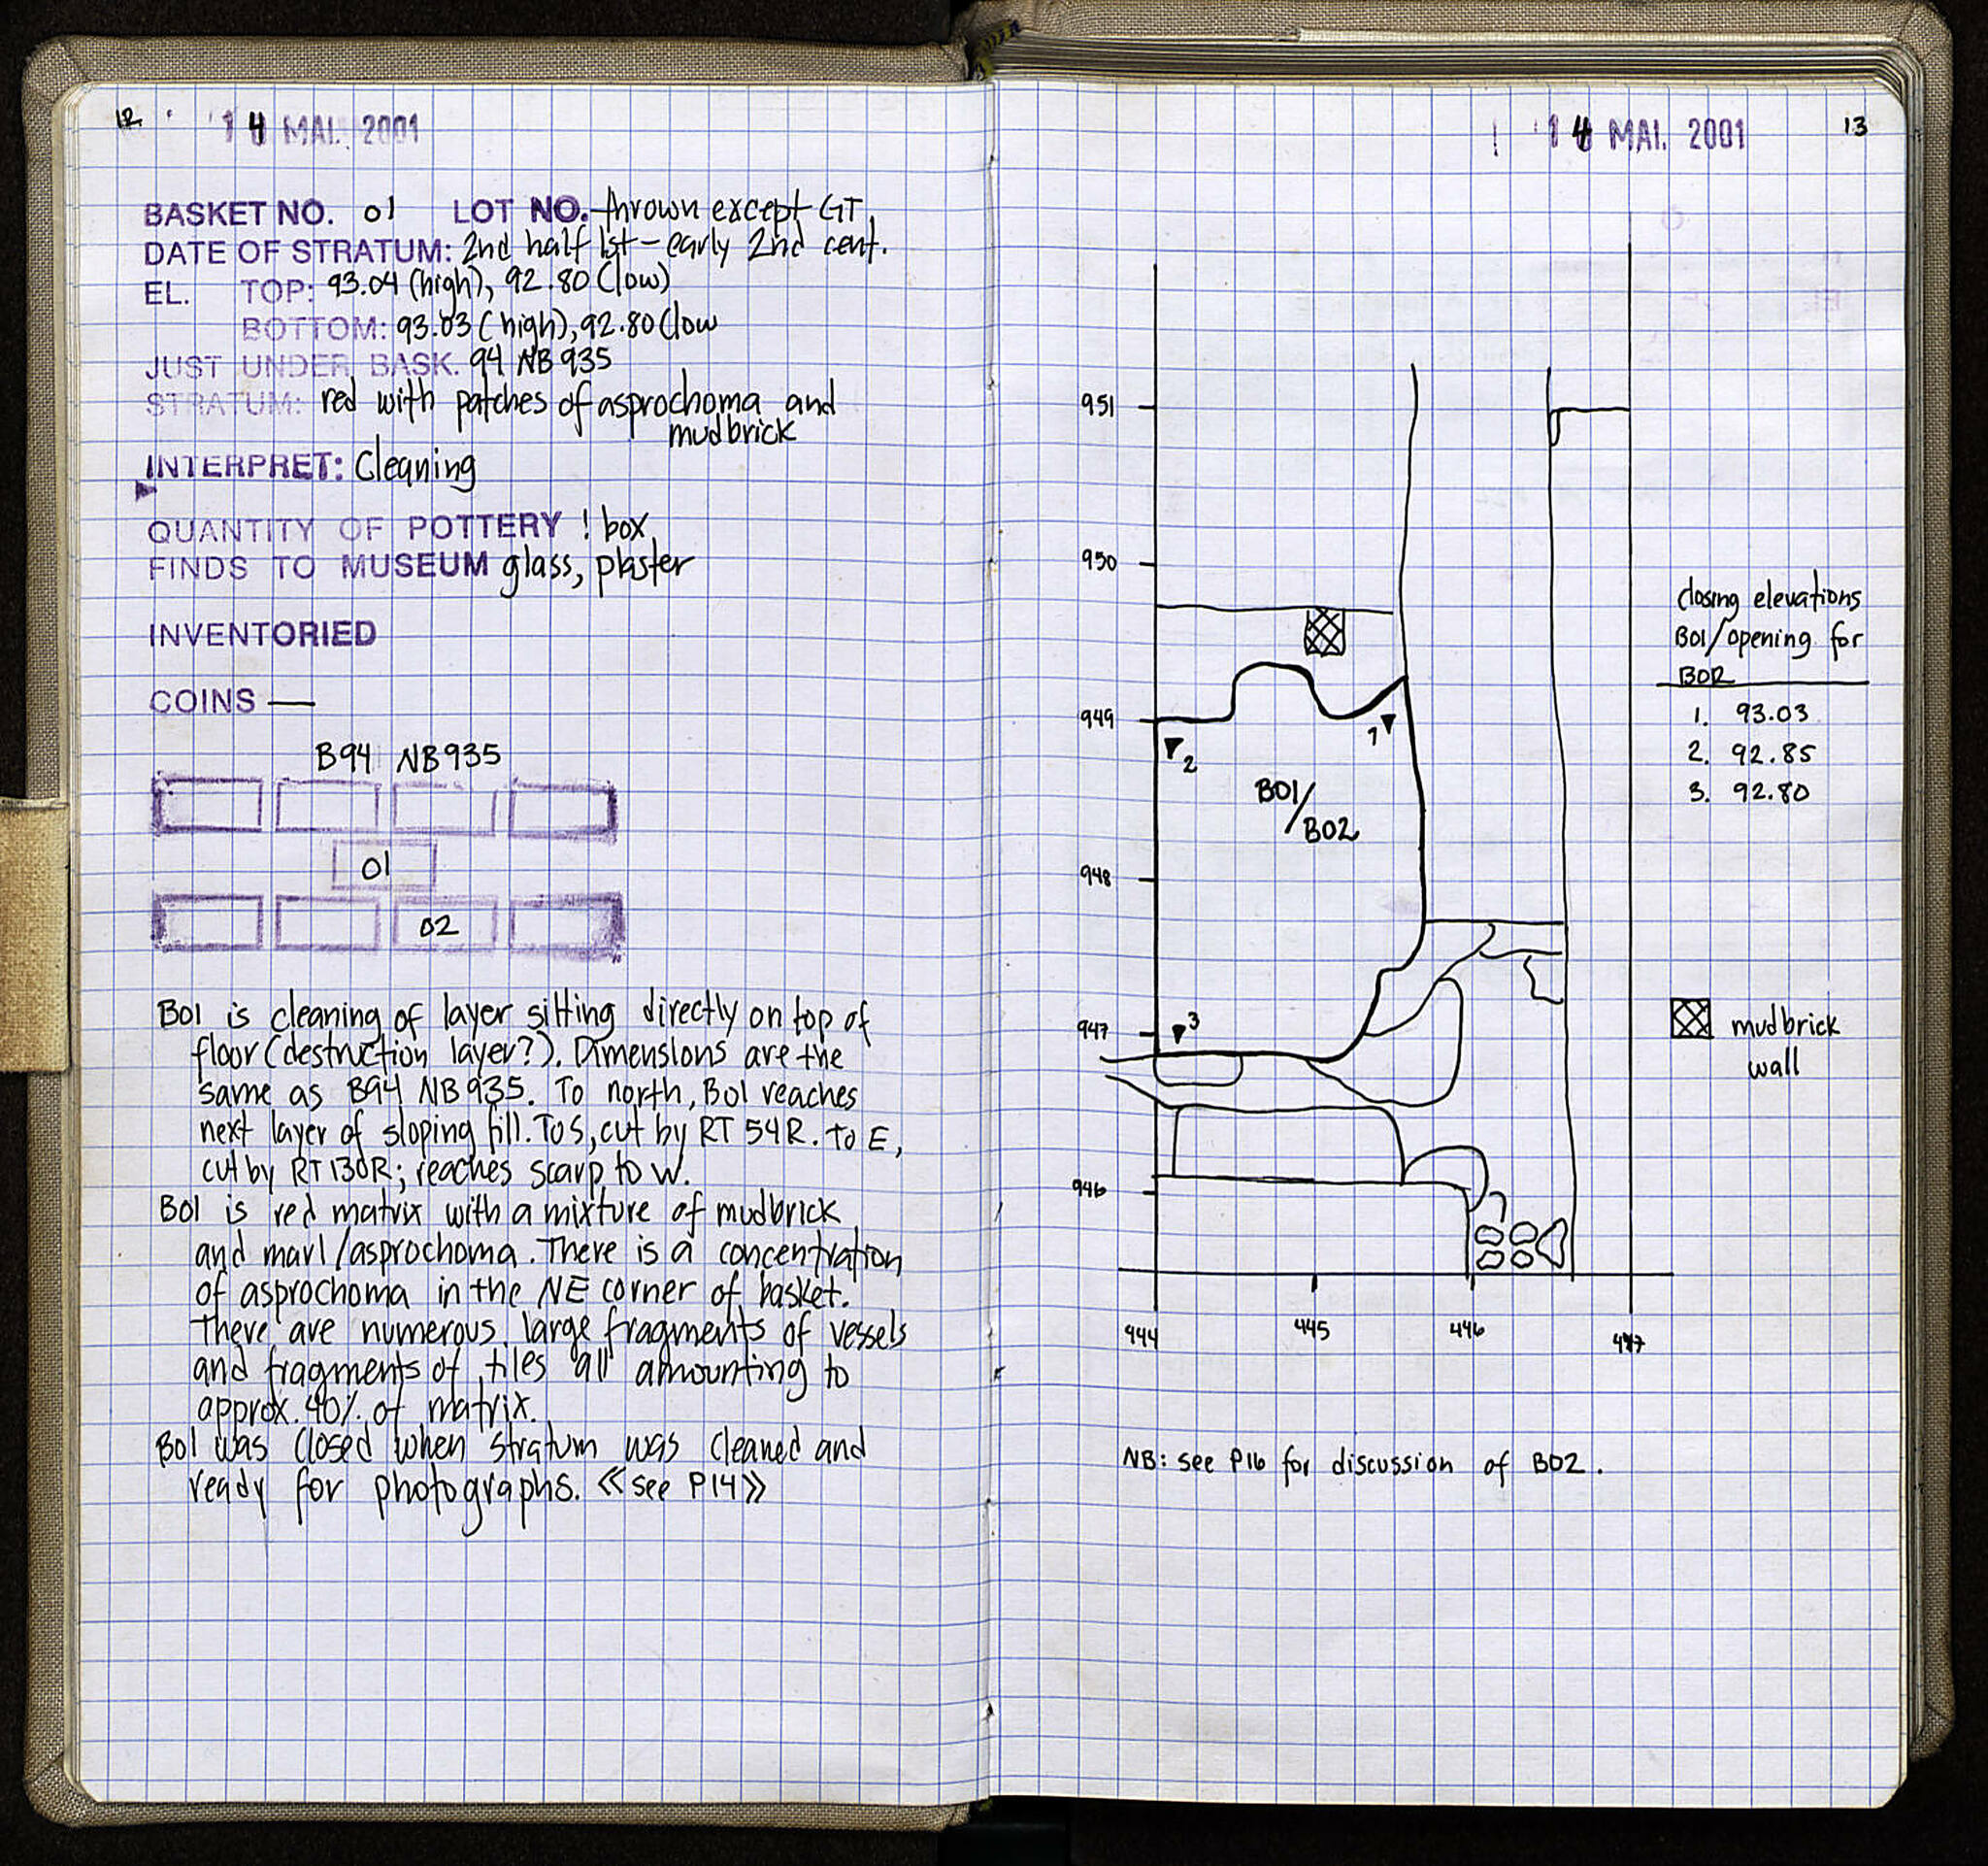 12
14 MAI. 2001
BASKET NO. 01 LOT NO. thrown except GT
DATE OF STRATUM: 2nd half 1st - early 2nd cent.
EL. TOP: 93.04 (high), 92.80 (low)
BOTTOM: 93.03 (high), 92.80 (low
JUST UNDER BASK. 94 NB 935
STRATUM: red with patches of asprochoma and
mudbrick
INTERPRET: Cleaning
QUANTITY OF POTTERY ! box
FINDS TO MUSEUM glass, plaster
INVENTORIED
COINS —
B94 NB935
01
02
B01 is cleaning of layer sitting directly on top of
floor (destruction layer?). Dimensions are the
same as B94 NB935. To north, B01 reaches
next layer of sloping fill. To S, cut by RT 54R. to E,
cut by RT 130R; reaches scarp to W.
B01 is red matrix with a mixture of mudbrick
and marl/asprochoma. There is a concentration
of asprochoma in the NE corner of basket.
There are numerous large fragments of vessels
and fragments of tiles all amounting to
approx. 40% of matrix.
B01 was closed when stratum was cleaned and
ready for photographs. «see P14»
14 MAI. 2001
13
951
950
949
948
947
946
1
2
B01/
B02
3
444
445
446
447
closing elevations
B01/opening for
B02
1. 93.03
2. 92.85
3. 92.80
mudbrick
wall
NB: see P16 for discussion of B02.